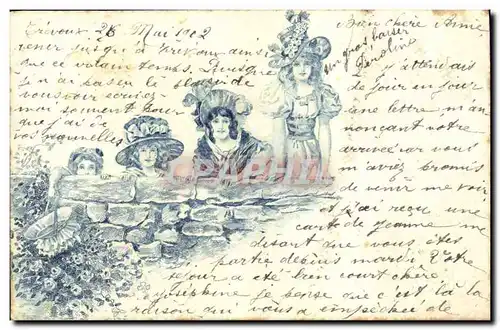 Trévoux 28 Mai 1902
venir jusqu'à Trévoux dans
que ce vilain temps. Puisque
je n'ai pas eu le plaisir de
vous voir
moi souvent pour
que j'ai de
vos nouvelles
Bien chère Amie
un gros baiser
Caroline
J'attendais
de jour en jour
une lettre m'an
nonçant votre
arrivée car vous
m'aviez promis
de venir me voir
et j'ai reçu une
carte de Jeanne me
disant que vous êtes
partie depuis mardi Votre
séjour a été bien court chère
Joséphine je pense que c'est là la
raison qui vous a empêchée de
CPARAMA